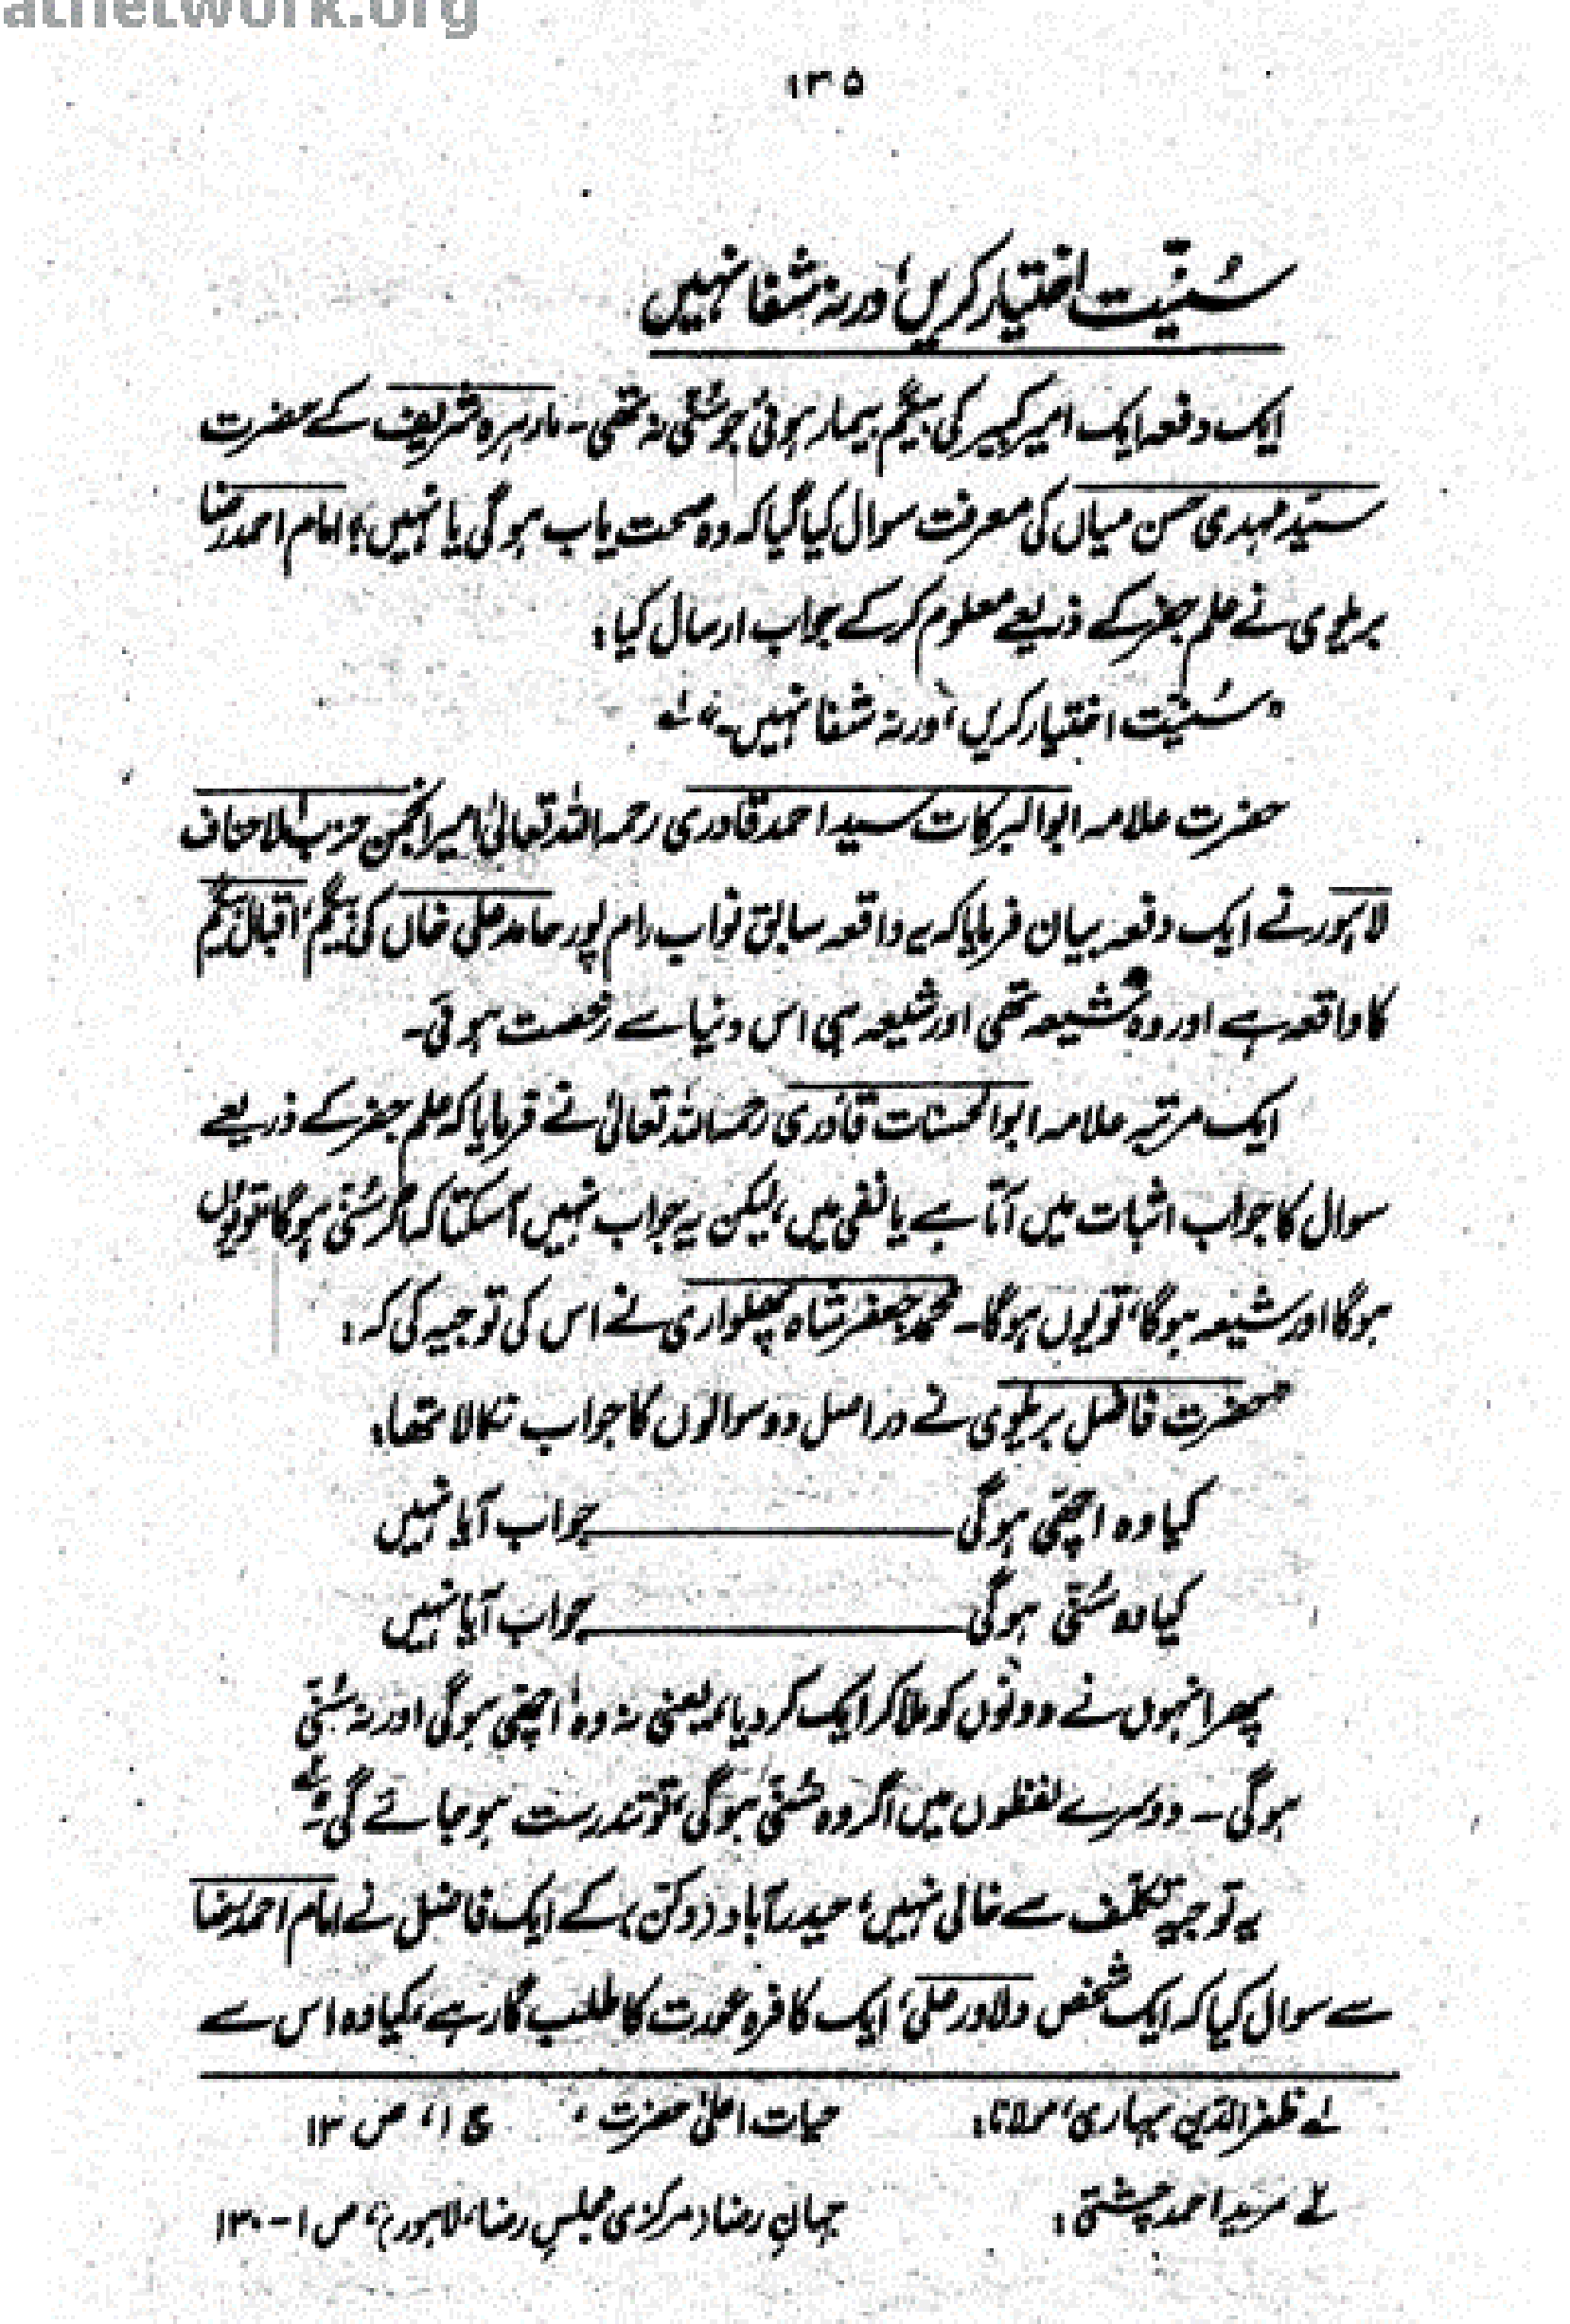 atnetwork.org
۱۳۵
سُنیّت اختیار کریں، ورنہ شفا نہیں
ایک دفعہ ایک امیر کبیر کی بیگم بیمار ہوئی جو سُنّی نہ تھی۔ مارہرہ شریف کے حضرت
سیّد مہدی حسن میاں کی معرفت سوال کیا گیا کہ وہ صحت یاب ہوگی یا نہیں؟ امام احمد رضا
بریلوی نے علم جفر کے ذریعے معلوم کرکے جواب ارسال کیا:
"سُنیّت اختیار کریں، ورنہ شفا نہیں۔" ۱؎
حضرت علامہ ابوالبرکات سید احمد قادری رحمہ اللہ تعالیٰ امیر انجمن حزب الاحناف
لاہور نے ایک دفعہ بیان فرمایا کہ یہ واقعہ سابق نواب رام پور حامد علی خاں کی بیگم، اقبال بیگم
کا واقعہ ہے اور وہ شیعہ تھی اور شیعہ ہی اس دنیا سے رخصت ہوئی۔
ایک مرتبہ علامہ ابوالحسنات قادری رحمہ اللہ تعالیٰ نے فرمایا کہ علم جفر کے ذریعے
سوال کا جواب اثبات میں آتا ہے یا نفی میں، لیکن یہ جواب نہیں آسکتا کہ اگر سُنّی ہوگا تو یُوں
ہوگا اور شیعہ ہوگا، تو یوں ہوگا۔ محمد جعفر شاہ پھلواری نے اس کی توجیہ کی کہ:
حضرت فاضل بریلوی نے دراصل دو سوالوں کا جواب نکالا تھا:
کیا وہ اچھّی ہوگی ــــــــــــ جواب آیا نہیں
کیا وہ سُنّی ہوگی ــــــــــــ جواب آیا نہیں
پھر انہوں نے دونوں کو ملا کر ایک کر دیا، یعنی نہ وہ اچھّی ہوگی اور نہ سُنّی
ہوگی۔ دوسرے لفظوں میں اگر وہ سُنّی ہوگی، تو تندرست ہو جائے گی۔ ۲؎
یہ توجیہ تکلّف سے خالی نہیں، حیدرآباد (دکن) کے ایک فاضل نے امام احمد رضا
سے سوال کیا کہ ایک شخص دلاور علی، ایک کافرہ عورت کا طلب گار ہے، کیا وہ اس سے
۱؎ ظفر الدین بہاری، مولانا: حیات اعلیٰ حضرت، ج ۱، ص ۱۳
۲؎ مرید احمد چشتی: جہانِ رضا (مرکزی مجلس رضا، لاہور)، ص ۱-۱۳۰